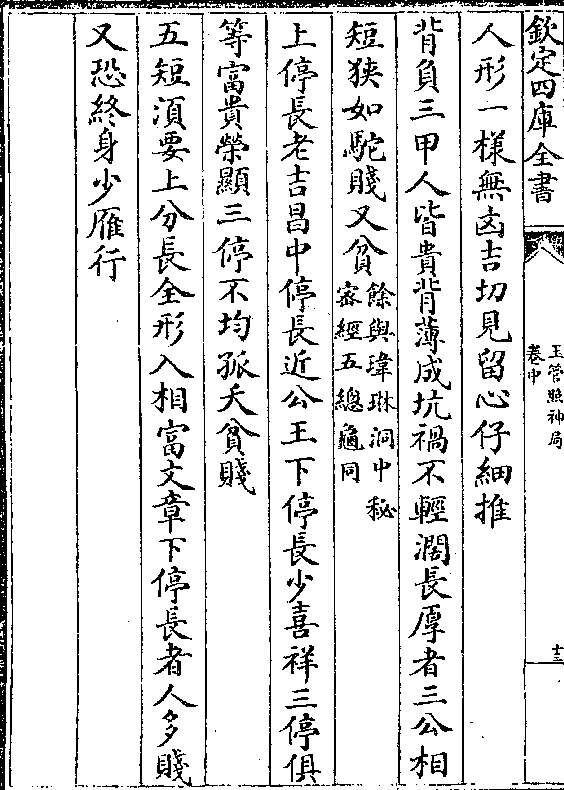 欽定四庫全書
玉管照神局
卷中
十三
人形一樣無凶吉切見留心仔細推
背負三甲人皆貴背薄成坑禍不輕濶長厚者三公相
短狹如駝賤又貧餘與瑋琳洞中秘
密經五總龜同
上停長老吉昌中停長近公王下停長少喜祥三停俱
等富貴榮顯三停不均孤夭貧賤
五短須要上分長全形入相富文章下停長者人多賤
又恐終身少雁行